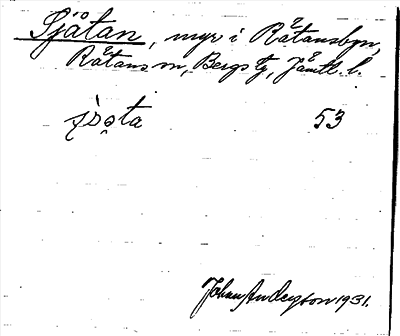 Sjåtan, myr i Råtansbyn,
Råtans sn, Bergs tg, Jämtl. l.
53
Johan Anderson 1931.